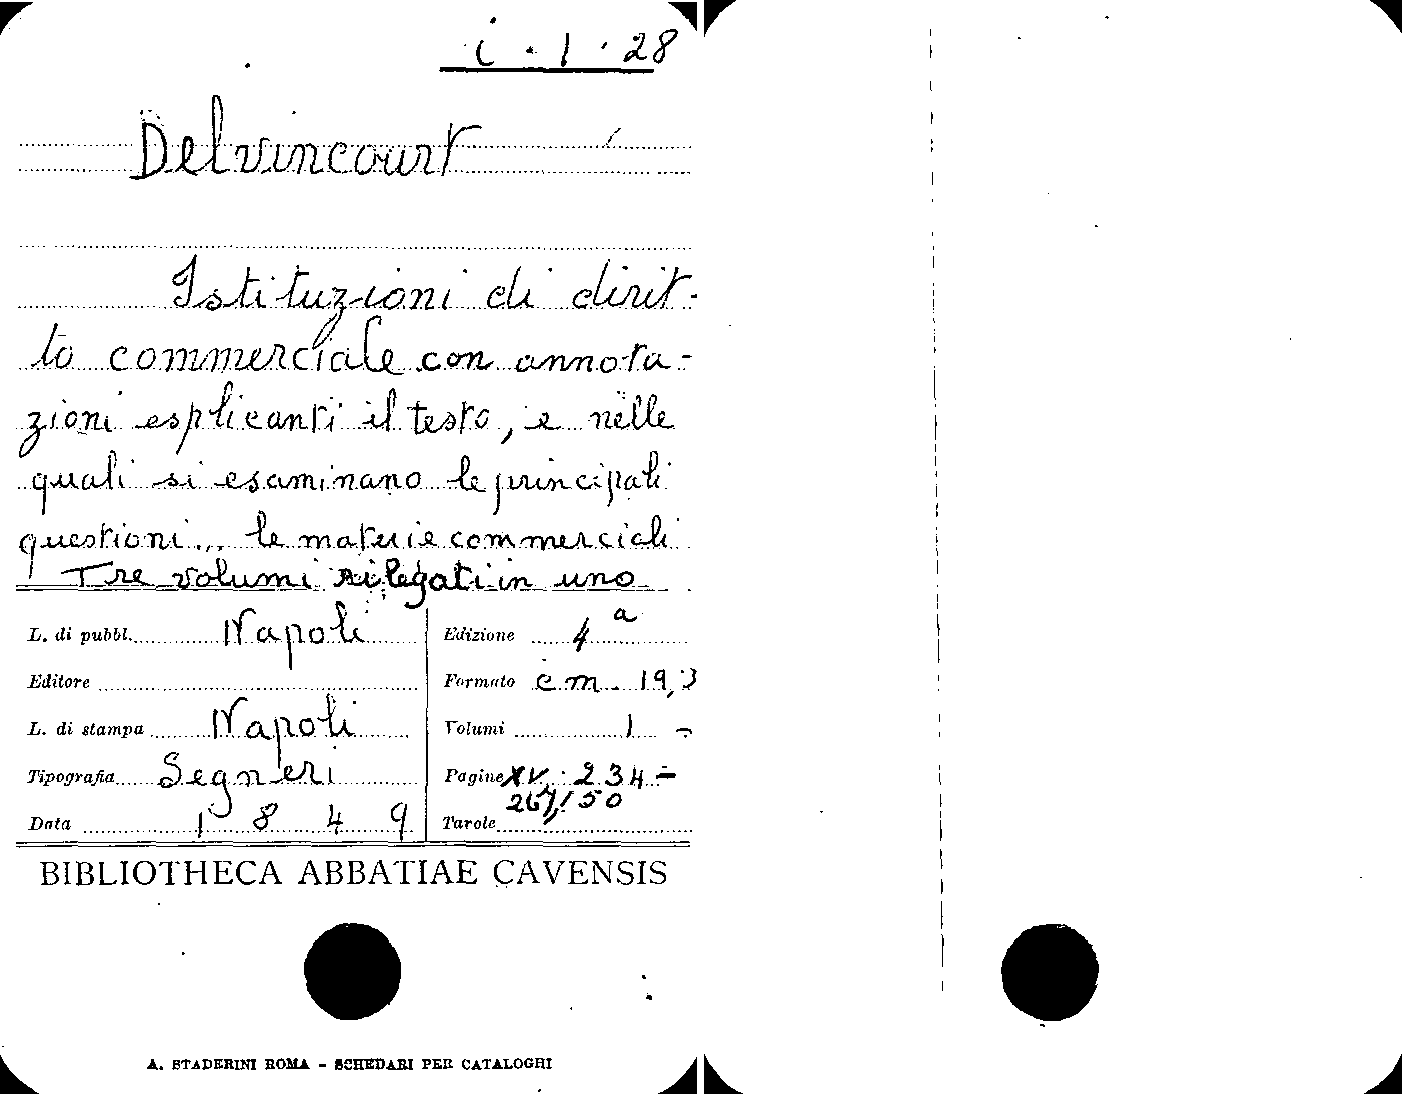 i · 1 · 28
Delvincourt
Istituzioni di dirit-
to commerciale con annota-
zioni esplicanti il testo, e nelle
quali si esaminano le principali
questioni... le materie commerciali
Tre volumi rilegati in uno
L. di pubbl. Napoli
Editore
L. di stampa Napoli
Tipografia Segneri
Data 1849
Edizione 4a
Formato cm. 19,3
Volumi 1 -
Pagine XV. 234 -
267, 150
Tavole
BIBLIOTHECA ABBATIAE CAVENSIS
A. STADERINI ROMA - SCHEDARI PER CATALOGHI